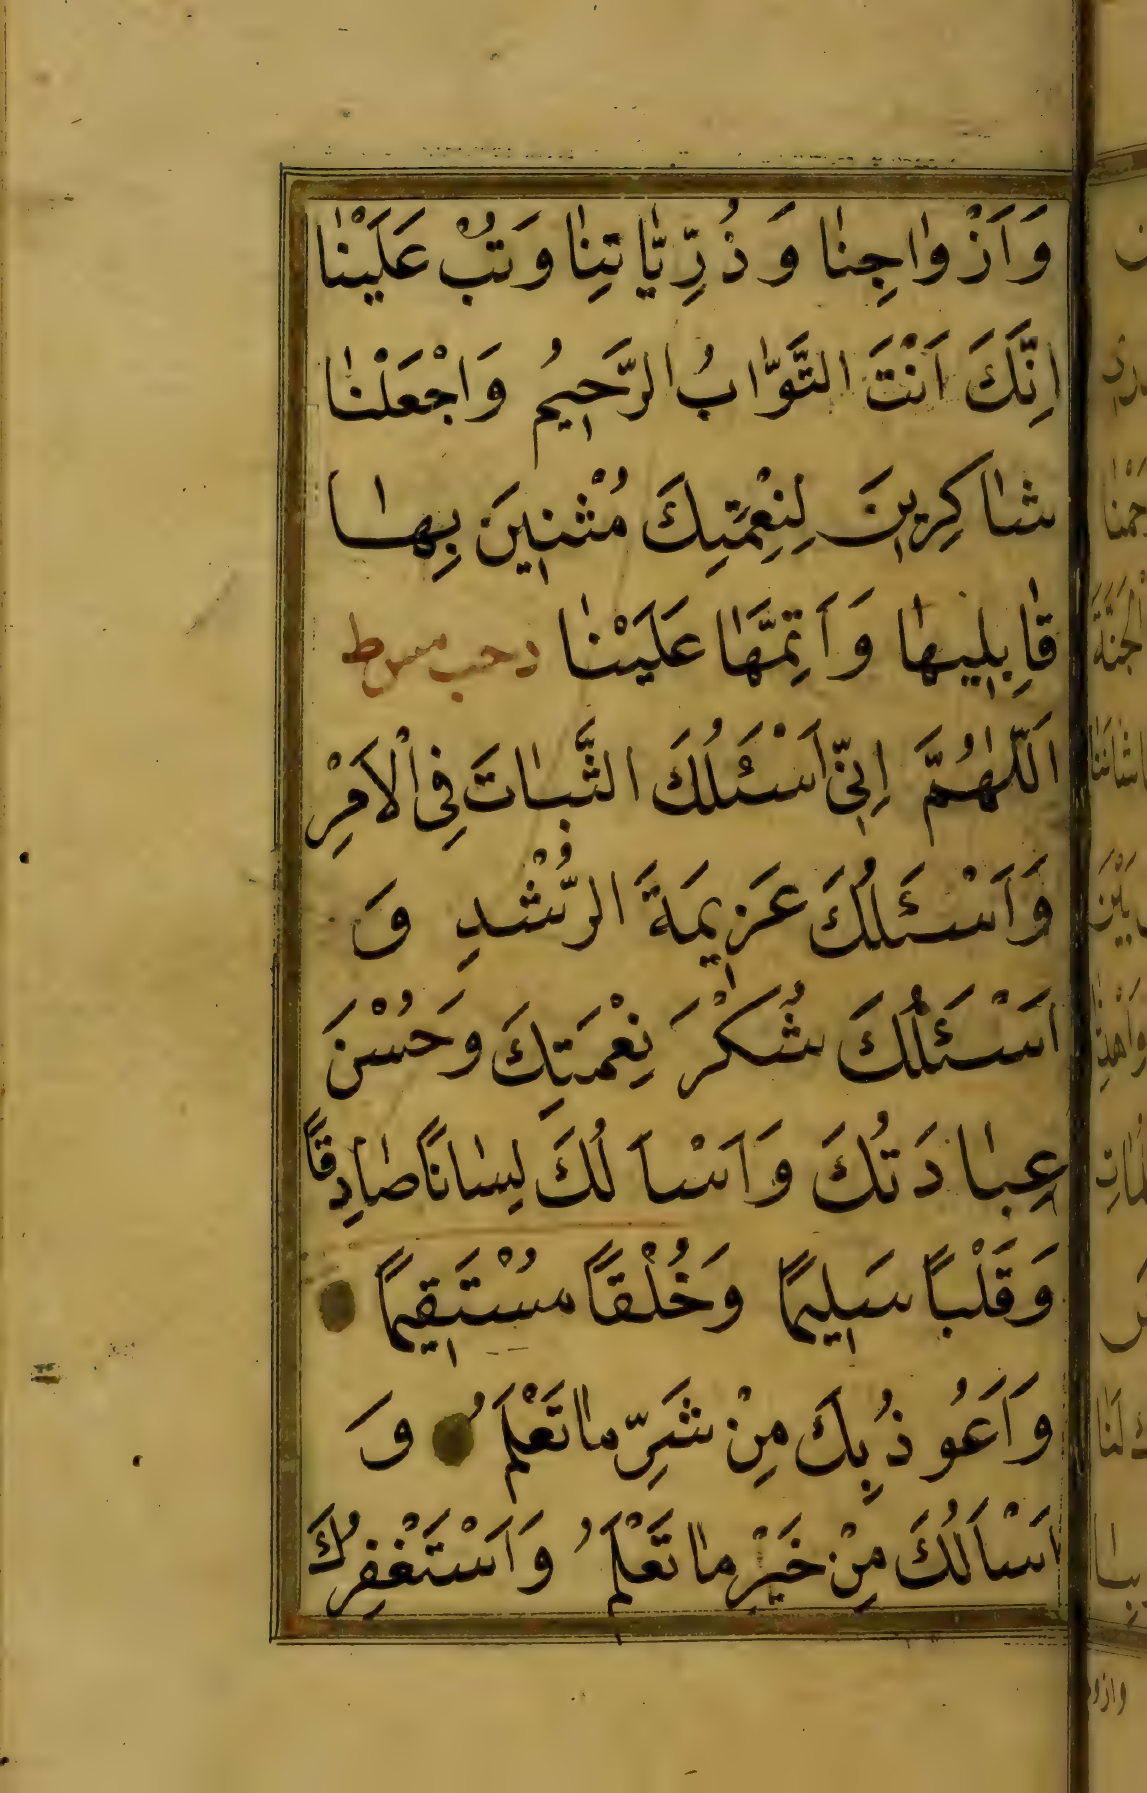 وَاَزْوٰاجِنٰا وَذُرِّيّٰاتِنٰا وَتُبْ عَلَيْنٰا
اِنَّكَ اَنْتَ التَّوّٰابُ الرَّحٖيمُ وَاجْعَلْنٰا
شٰاكِرٖينَ لِنِعْمَتِكَ مُثْنٖينَ بِهٰا
قٰابِلٖيهٰا وَاَتِمَّهٰا عَلَيْنٰا د حب مس ط
اَللّٰهُمَّ اِنّٖى اَسْئَلُكَ الثَّبٰاتَ فِى الْاَمْرِ
وَاَسْئَلُكَ عَزٖيمَةَ الرُّشْدِ وَ
اَسْئَلُكَ شُكْرَ نِعْمَتِكَ وَحُسْنَ
عِبٰادَتُكَ وَاَسْاَلُكَ لِسٰانًا صٰادِقًا
وَقَلْبًا سَلٖيمًا وَخُلْقًا مُسْتَقٖيمًا
وَاَعُوذُ بِكَ مِنْ شَرِّ مٰا تَعْلَمُ وَ
اَسْاَلُكَ مِنْ خَيْرِ مٰا تَعْلَمُ وَاَسْتَغْفِرُكَ